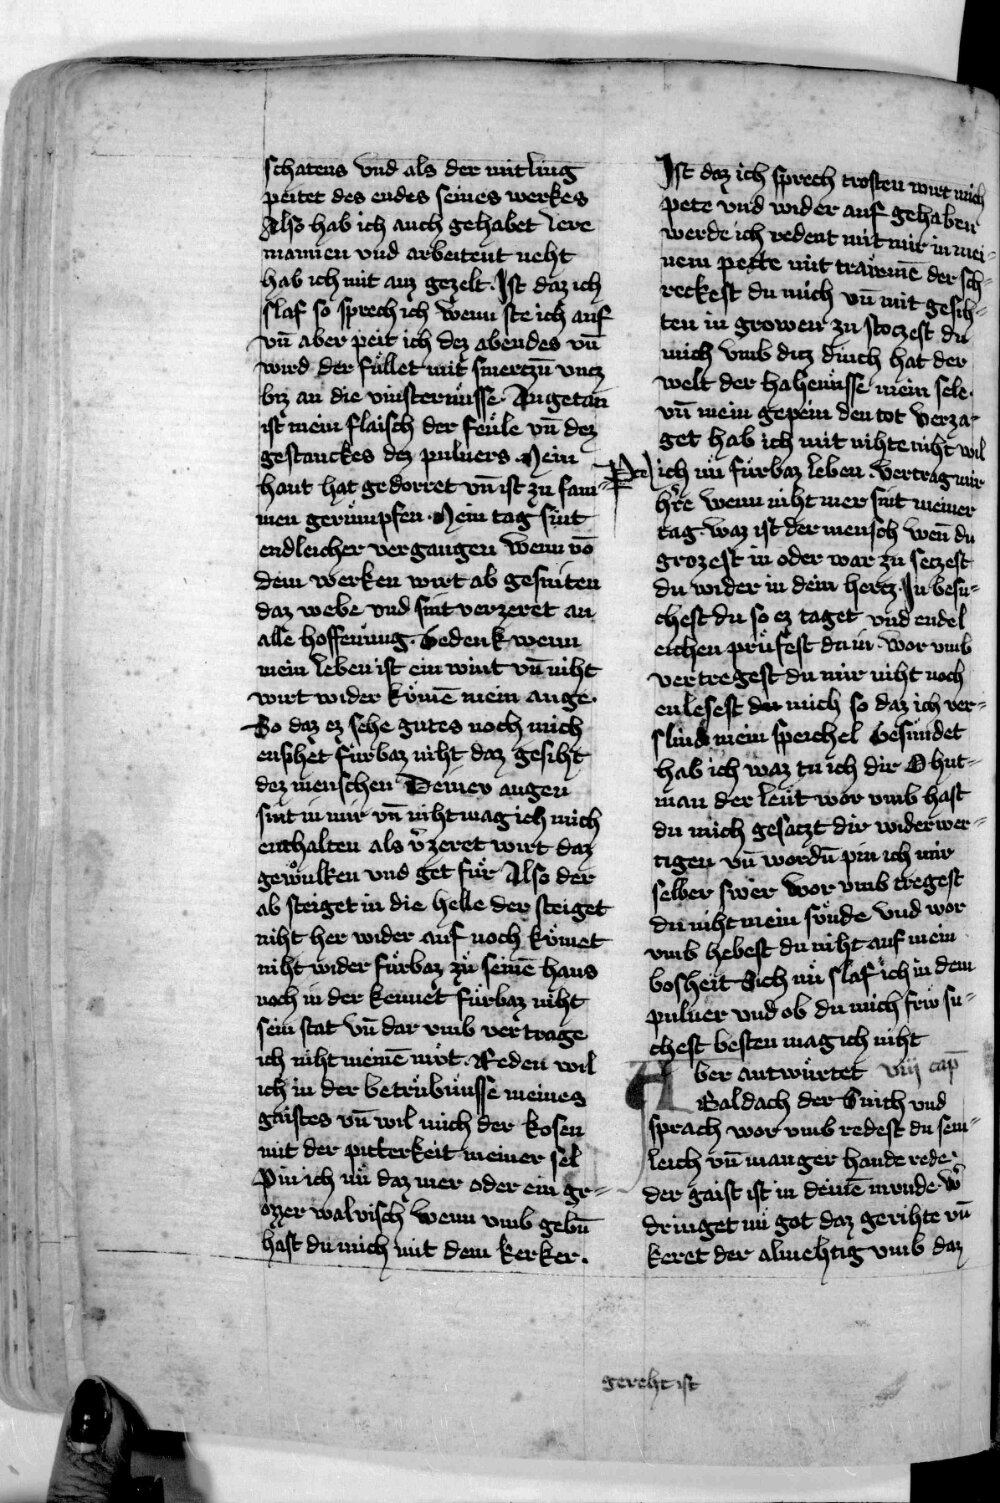 schatens vnd als der mitling
peitet des endes seines werkes
Also hab ich auch gehabet lere
manien vnd arbeitent neht
hab ich mit auz gezelt. Ist daz ich
slaf so sprech ich wenn ste ich auf
vn̄ aber peit ich dez abendes vn̄
wird der fu̍llet mit smerczn̄ vncz
biz an die vinsternu̍sse. Angetan
ist mein flaisch der feu̍le vn̄ dez
gestanckes dez puluers Mein
haut hat gedorret vn̄ ist zu sam-
men geru̍mpfen. Mein tag sint
endleicher vergangen wenn vō
dem werken wirt ab gesniten
daz webe vnd sint verzeret an
alle hoffenung. Gedenk wenn
mein leben ist ein wint vn̄ niht
wirt wider ko̍mē mein auge.
So daz ez sehe gutes noch mich
ensihet fu̍rbaz niht daz gesiht
dez menschen Deinev augen
sint in mir vn̄ niht mag ich mich
enthalten als v̍zeret wirt daz
gewo̍lken vnd get fu̍r Also der
ab steiget in die helle der steiget
niht her wider auf noch ko̍met
niht wider fu̍rbaz zu̍ seinē haus
noch in der kennet fu̍rbaz niht
sein stat vn̄ dar vmb vertrage
ich niht meinē mo̍t. Reden wil
ich in der betru̍bnu̍sse meines
gaistes vn̄ wil mich der kosen
mit der pitterkeit meiner sel
Pin ich nu̍ daz mer oder ein gr-
ozzer walvisch wenn vmb gebn̄
hast du mich mit dem kerker.
Ist daz ich sprech trosten wirt mich
pete vnd wider auf gehaben
werde ich redent mit mir in mei-
nem pette mit trawmē der sch-
reckest du mich vn̄ mit gesih-
ten in growen zu stoczest du
mich vmb diz durch hat der
welt der hahenu̍sse mein sele.
vn̄ mein gepein den tot verza-
get hab ich mit nihte niht wil
ich nu̍ fu̍rbaz leben. Vertrag mir
h̍re wenn niht mer sint meiner
tag. waz ist der mensch wen̄ du
grozest in oder war zu seczest
du wider in dein hercz. In besu-
chest du so ez taget vnd endel
eichen pru̍fest du in. wor vmb
vertregest du mir niht noch
enlesest du mich so daz ich ver-
slind mein speichel Gesundet
hab ich waz tu ich dir O hut-
man der leu̍t wor vmb hast
du mich gesatzt dir widerwer-
tigen vn̄ wordn̄ pin ich mir
selber swer wor vmb tregest
du niht mein su̍nde vnd wor
vmb hebest du niht auf mein
bosheit Sich nu̍ slaf ich in dem
puluer vnd ob du mich frw su-
chest besten mag ich niht
Aber antwu̍rtet viij cap̄
Baldach der Suith vnd
sprach wor vmb redest du sem-
leich vn̄ manger hande rede.
der gaist ist in deinē munde
dringet nu̍ got daz gerihte vn̄
keret der almehtig vmb daz
gereht ist